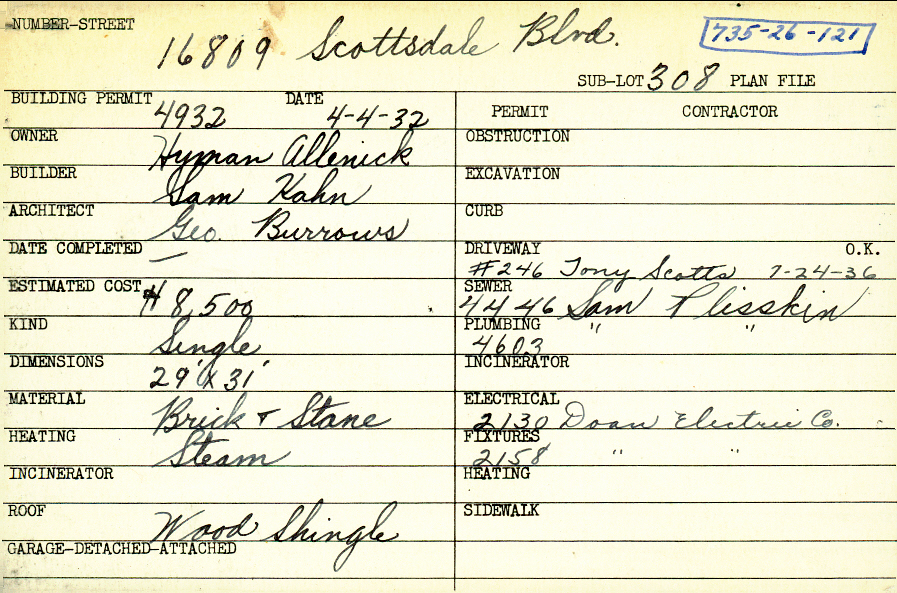 NUMBER-STREET
16809 Scottsdale Blvd.
735-26-121
SUB-LOT 308 PLAN FILE
BUILDING PERMIT 4932 DATE 4-4-32
OWNER Hyman Allenick
BUILDER Sam Kahn
ARCHITECT Geo. Burrows
DATE COMPLETED —
ESTIMATED COST $8,500
KIND Single
DIMENSIONS 29' X 31'
MATERIAL Brick & Stone
HEATING Steam
INCINERATOR
ROOF Wood Shingle
GARAGE-DETACHED-ATTACHED
PERMIT CONTRACTOR
OBSTRUCTION
EXCAVATION
CURB
DRIVEWAY O.K.
#246 Tony Scotts 7-24-36
SEWER
4446 Sam Plisskin
PLUMBING " "
4603
INCINERATOR
ELECTRICAL
2130 Doan Electric Co.
FIXTURES
2158 " "
HEATING
SIDEWALK